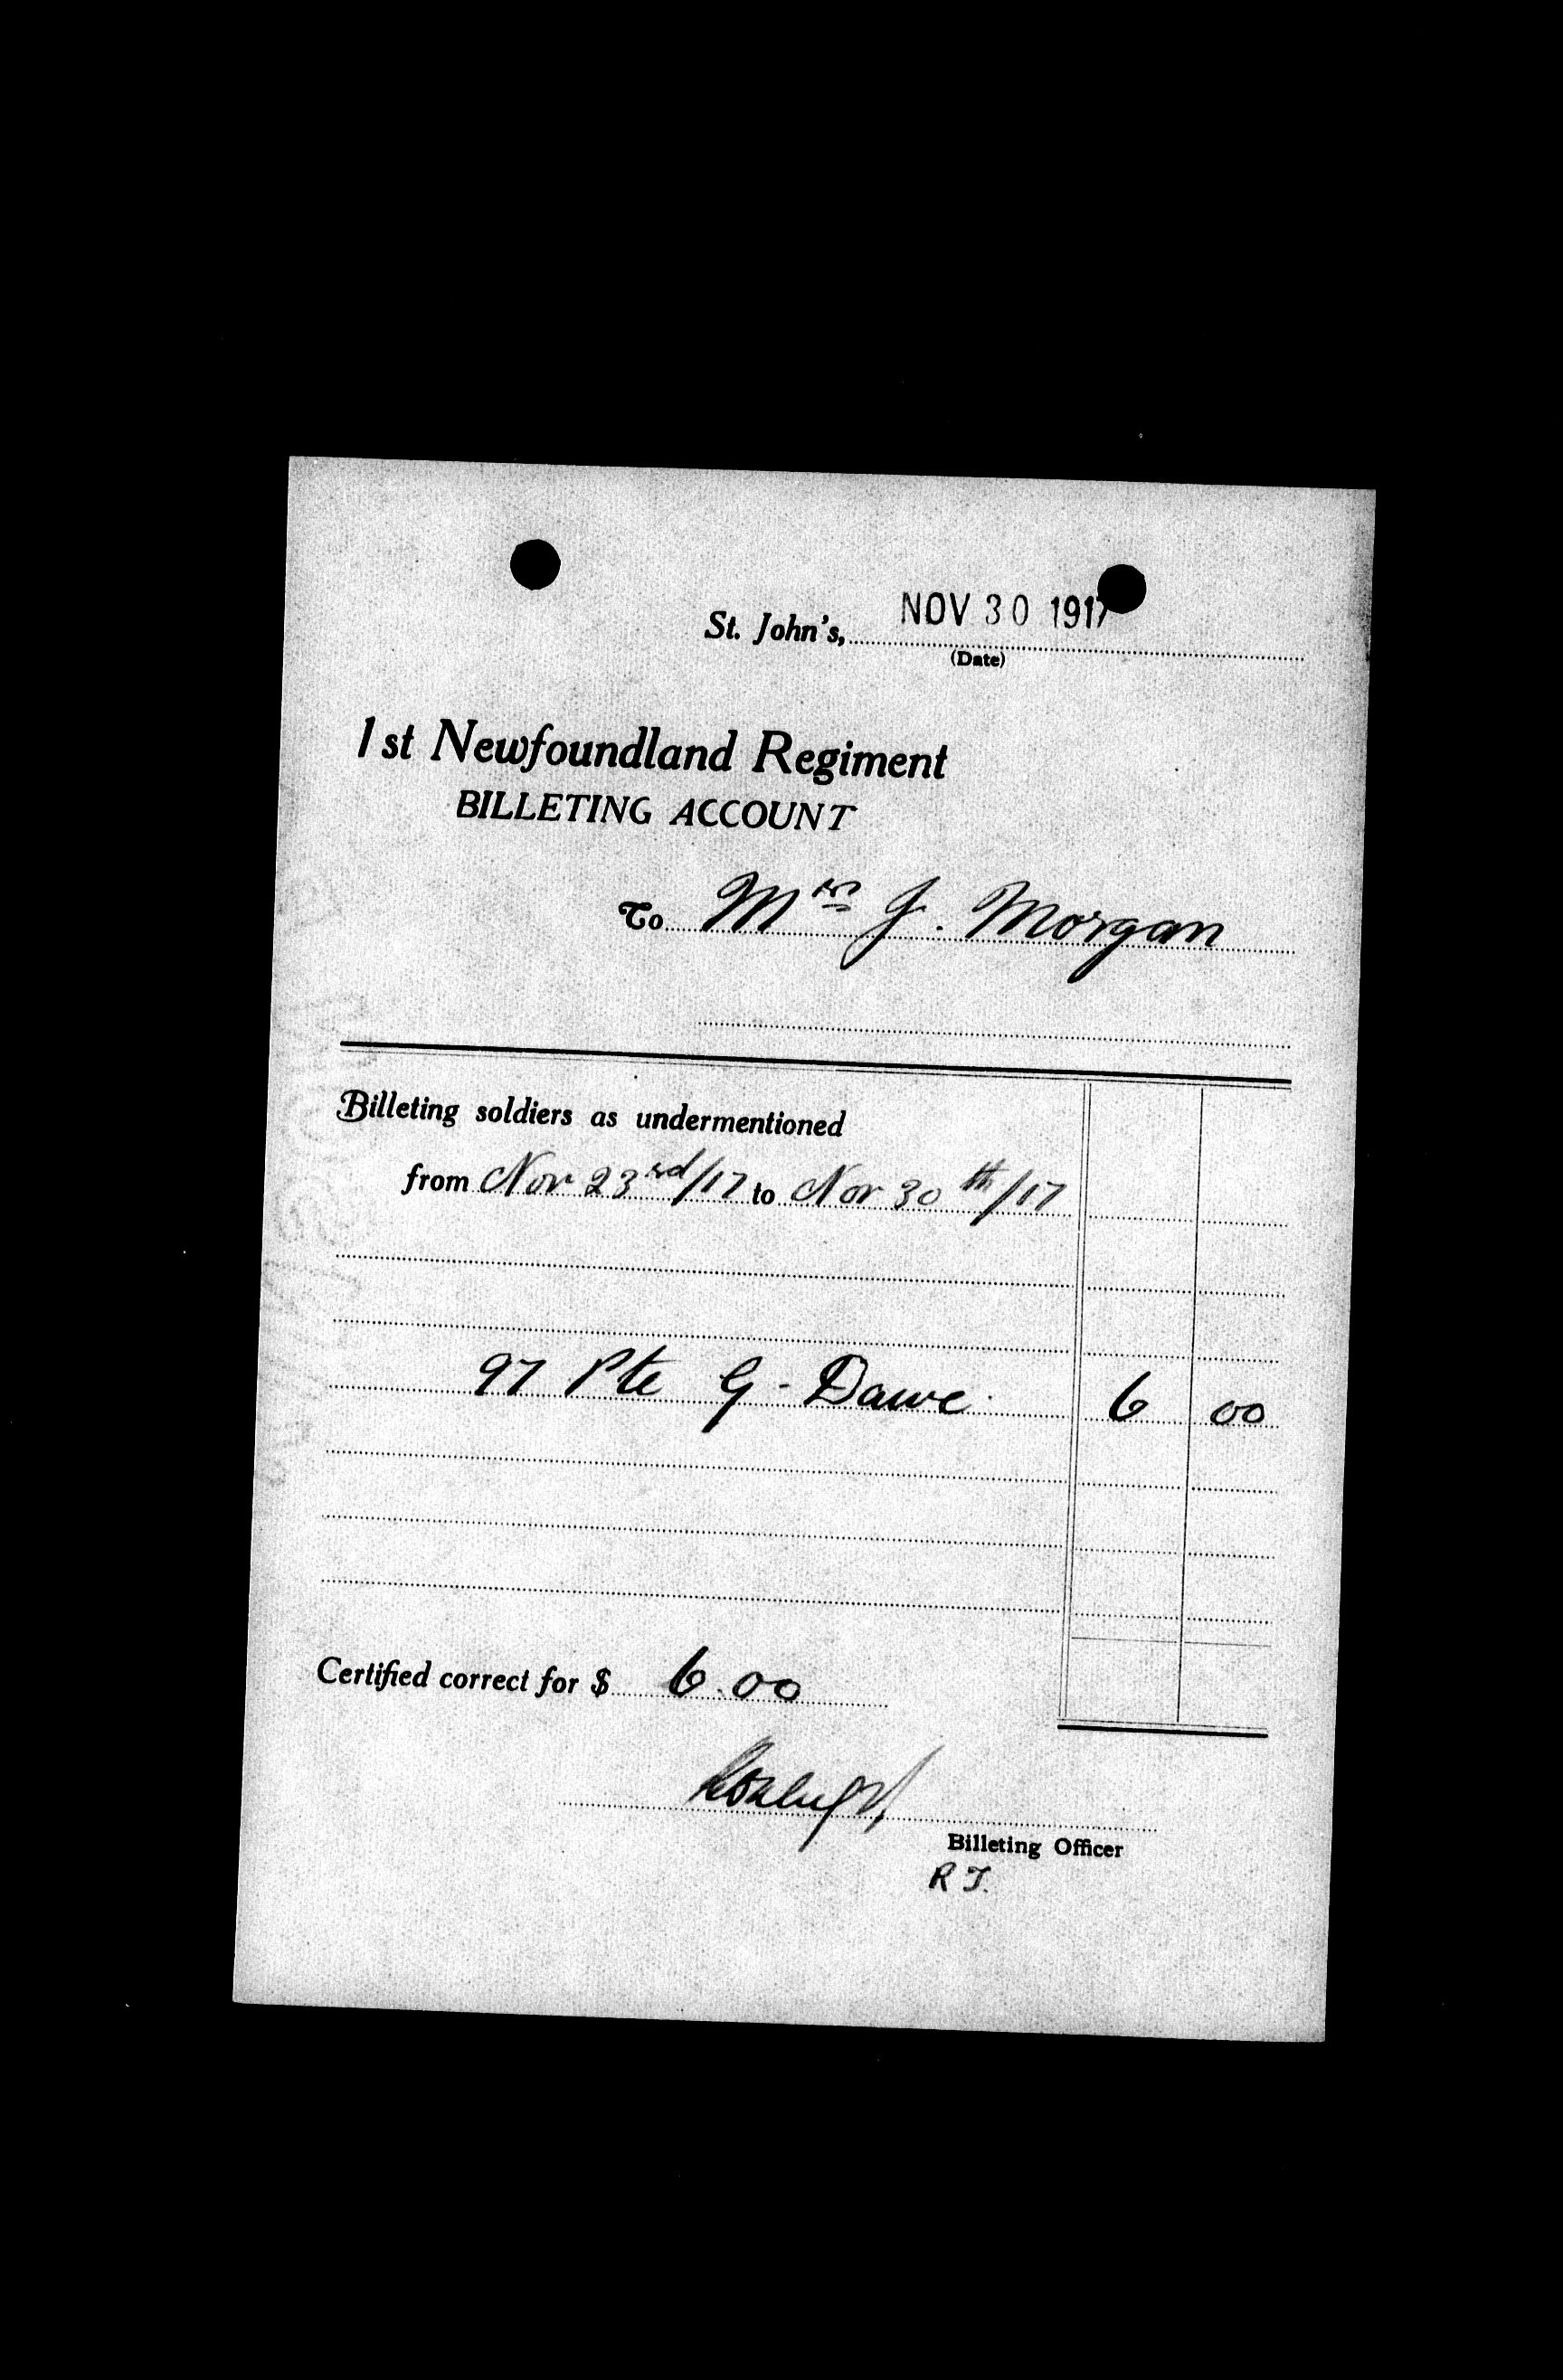 St. John's, NOV 30 1917
(Date)
1st Newfoundland Regiment
BILLETING ACCOUNT
To Mrs J. Morgan
Billeting soldiers as undermentioned
from Nov 23rd/17 to Nov 30th/17
97 Pte G. Dawe 6 00
Certified correct for $ 6.00
Billeting Officer
R J.